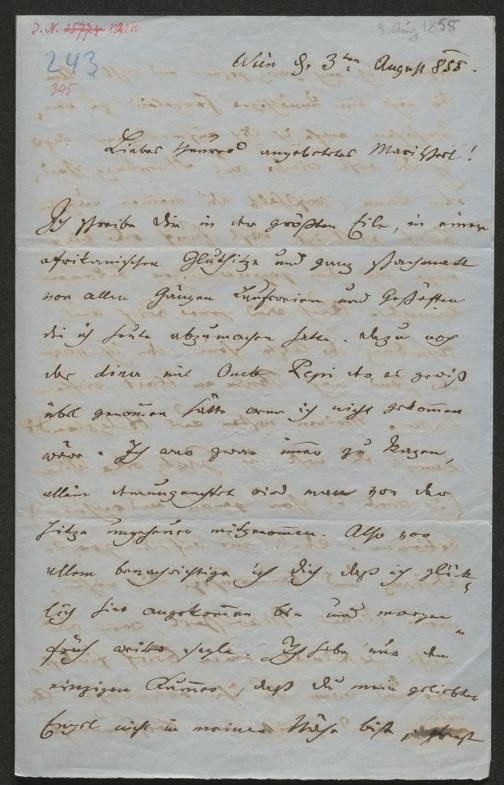 I. N. 25774 194211
3. Aug 1855
243
395
Wien d. 3ten August 855.
Liebes theures angebetetes Maritscherl!
Ich schreibe Dir in der größten Eile, in einer
afrikanischen Gluthitze und ganz schachmatt
von allen Gängen und Geschäften
die ich heute abzumachen hatte. dazu noch
das diner mit Onkel Pepi der es gewiß
übel genommen hätte wenn ich nicht gekommen
wäre. Ich war zwar immer zu Wagen,
allein demungeachtet wird man von der
Hitze ungeheuer mitgenommen. Also vor
allem benachrichtige ich Dich daß ich glück-
lich hier angekommen bin und morgen
früh weiter segle. Ich habe nur den
einzigen Kummer, daß Du mein geliebter
Engel nicht in meiner Nähe bist